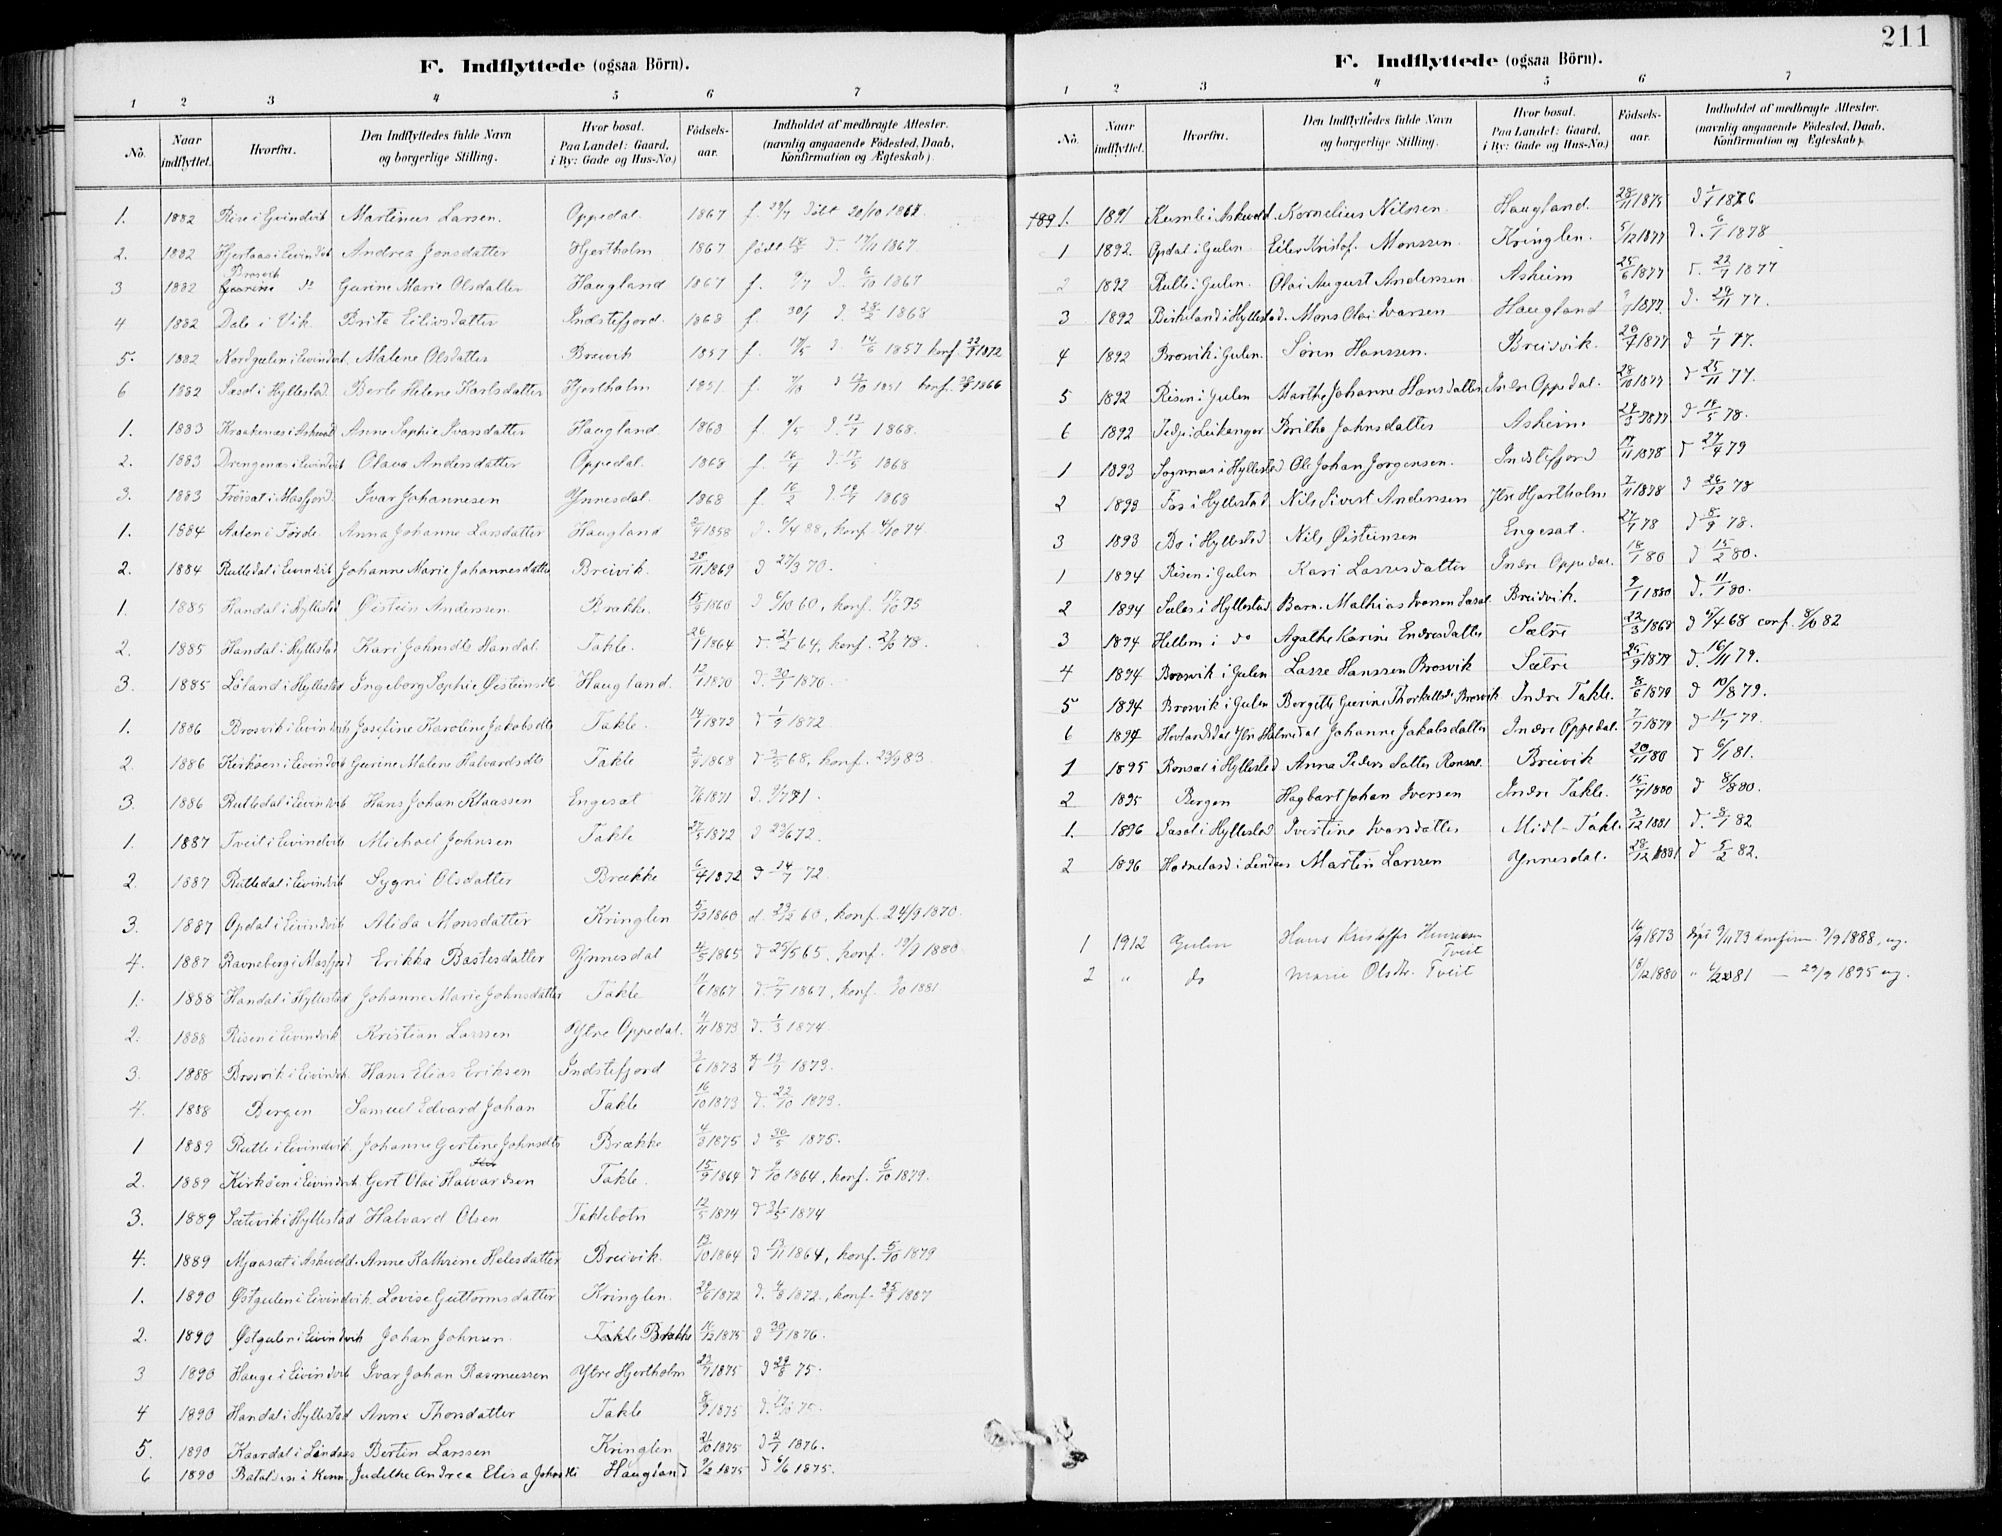 F. Indflyttede (ogsaa Börn).
1 2 3 4 5 6 7
No. Naar indflyttet. Hvorfra. Den Indflyttedes fulde Navn og borgerlige Stilling. Hvor bosat. Paa Landet: Gaard, i By: Gade og Hus-No.) Fødsels-aar. Indholdet af medbragte Attester. (navnlig angaaende Födested, Daab, Konfirmation og Ægteskab).
1. 1882 Rise i Evindvik Martinus Larsen. Oppedal. 1867 f. 29/7 döbt 20/10 1867.
2. 1882 Hjertaas i Eivindvik Andrea Jonsdatter Hjertholm 1867 født d. 17/11 1867
3 1882 Brosvik do Gurine Marie Olsdatter Haugland 1867 f. 9/7 d. 6/10 1867
4 1882 Dale i Vik Brita Eiliusdatter Indstefjord. 1868 f. 30/1 d. 28/2 1868
5. 1882 Nordgulen i Eivindvik. Malene Olsdatter Breivik 1857 f. 17/5 d. 14/6 1857 konf. 22/9 1872
6 1882 Sæsol i Hyllestad Berte Helene Karlsdatter Hjertholm 1851. f. d 1851 konf. 1866
1. 1883 Kraakenæs i Askvold Anne Sophie Ivarsdatter Haugland 1868 f. 9/5 d. 12/7 1868.
2. 1883 Drengenæs i Eivindvik Olava Andersdatter Oppedal. 1868 f. 16/4 d. 17/5 1868
3. 1883 Frøiset i Masfjord Ivar Johannesen Ynnesdal. 1868 f. 16/2 d. 1868
1. 1884 Aaten i Førde Anna Johanne Larsdatter Haugland 1858 d. konf. 4/10 74.
2. 1884 Rutledal i Eivindvik Johanne Marie Johannesdatter Breivik. 28/11 1869 d 27/3 70.
1. 1885 Handal i Hyllestad Øistein Anderssen. Brække. 15/9 1860 d 6/10 60, konf. 17/10 75
2. 1885 Handal i Hyllestad Kari Johnsdtr Handal. Takle. 26/1 1864 d. 21/2 64, konf. 78.
3. 1885 Løland i Hyllestad Ingeborg Sophie Øisteinsdtr Haugland. 12/1 1870 d. 30/1 1870
1. 1886 Brosvik i Eivindvik Josefine Karoline Jakobsdtr Takle. 14/7 1872 d 1/9 1872
2. 1886 Kirkøen i Eivindvik Gurine Malene Halvardsdtr Takle 1868 d 68, konf. 23/9 83.
3. 1886 Rutledal i Eivindvik Hans Johan Klaassen Engesæt 7/6 1871 d. 9/7 71.
1. 1887 Tveit i Eivindvik Michael Johnsen Takle 27/5 1872 d 23/6 72.
2. 1887 Rutledal i Eivindvik Sygni Olsdatter Brække 6/4 1872 d 14/7 72.
3. 1887 Opdal i Eivindvik Alida Monsdatter Kringlen 5/12 1860 d. 60, konf. 24/9 1870.
4. 1887 Ravneberg i Masfjord Erikka Bastesdatter Ynnesdal 4/5 1865 d 25/5 65, konf. 19/9 1880.
1. 1888 Handal i Hyllestad Johanne Marie Johnsdatter Takle 11/6 1867 d. 1867, konf. 1881
2. 1888 Risen i Eivindvik Kristian Larssen Ytre Oppedal. 9/11 1873 d. 1/3 1874.
3. 1888 Brosvik i Eivindvik Hans Elias Eriksen Indstefjord 2/6 1873 d 13/7 1873.
4. 1888 Bergen Samuel Edvard Johan Takle 16/10 1873 d. 22/10 1873.
1 1889 Rutle i Eivindvik. Johanne Gertine Johnsdtr Brække 4/3 1875 d 30/5 1875.
2. 1889 Kirkøen i Eivindvik Gert Olai Halvardsen Takle. 15/9 1864 d 9/10 1864, konf. 5/10 1879.
3. 1889 Sætevik i Hyllestad Halvard Olsen Taklebotn 12/5 1874 d 31/5 1874
4. 1889 Mjaasæt i Askvold. Anne Kathrine Helesdatter Breivik. 13/10 1864 d 13/11 1864, konf. 5/10 1879
1. 1890 Østgulen i Eivindvik. Lovise Guttormsdatter Kringlen. 29/6 1872 d. 4/8 1872, konf. 25/9 1887
2. 1890 Østgulen i Eivindvik Johan Johnsen. Takle Brække 11/12 1875 d 30/1 1876.
3 1890 Hauge i Eivindvik Ivar Johan Rasmussen Ytre Hjertholm 23/7 1875 d 29/8 75.
4 1890 Handal i Hyllestad Anna Thorsdatter Takle 8/9 1875 d. 17/10 75.
5. 1890 Kaardal i Lindaas Bertin Larssen Kringlen 31/10 1875 d 2/1 1876.
6 1890 Batalden i Kinn Judithe Andrea Elisa Johnsdtr Haugland 9/2 1875 d 6/6 1875.
211
F. Indflyttede (ogsaa Börn).
1 2 3 4 5 6 7
No. Naar indflyttet. Hvorfra. Den Indflyttedes fulde Navn og borgerlige Stilling. Hvor bosat. Paa Landet: Gaard, i By: Gade og Hus-No.) Fødsels-aar. Indholdet af medbragte Attester. (navnlig angaaende Födested, Daab, Konfirmation og Ægteskab).
1. 1891 Kumle i Askvold Kornelius Nilssen. Haugland. 28/11 1875 d 1/1 1876
1 1892. Opdal i Gulen. Eiler Kristof. Monssen. Kringlen. 5/12 1877 d. 6/1 1878
2 1892 Rutle i Gulen. Olai August Anderssen. Asheim 25/6 1877 d. 22/7 1877
3 1892 Birkeland i Hyllestad. Mons Olai Ivarsen Haugland 1877. d. 29/11 77.
4 1892 Brosvik i Gulen. Søren Hanssen. Breidvik. 26/4 1877 d 1/7 77.
5 1892 Risen i Gulen Marthe Johanne Hansdatter Indre Oppedal. 28/10 1877 d 25/11 77.
6 1892 i Leikanger Brithe Johnsdatter Asheim 29/3 1877 d 19/5 78.
1 1893 Sognnæs i Hyllestad Ole Johan Jørgensen. Indstefjord 17/11 1878 d 27/4 79
2 1893 Fos i Hyllestad Nils Sivert Anderssen Ytre Hjertholm 7/11 1878 d 26/12 78
3 1893 Bø i Hyllestad Nils Øisteinsen Engesæt. 27/7 78 d 8/9 78.
1 1894 Risen i Gulen Kari Lassesdatter Indre Oppedal. 18/1 80 d 15/2 80.
2 1894 Sæles i Hyllestad Barn. Mathias Iversen Breidvik. 9/1 1880 d. 11/1 80.
3 1894 Hellem i do Agathe Karine Endresdatter Sætre 22/3 1868 d 5/4 68 conf. 8/10 82
4 1894 Brosvik i Gulen Lasse Hanssen Brosvik Sætre 25/9 1879 d. 16/11 79.
5 1894 Brosvik i Gulen Borgette Gurine Thorkelsdtr Brosvik Indre Takle. 8/6 1879 d 10/8 79.
6 1894 Hovlandsdal Ytre Holmedal Johanne Jakobsdatter Indre Oppedal. 7/7 1879 d 11/7 79.
1 1895 Rønsæt i Hyllestad Anna Pedersdatter Rønset. Breivik 20/11 80 d 6/1 81.
2 1895 Bergen Hagbart Johan Iversen Indre Takle. 15/7 1880 d 8/8 80.
1. 1896 Sasol i Hyllestad Ivertine Ivarsdatter Midt-Takle 3/12 1881 d. 8/1 82
2 1896 Hodneland i Lindaas Martin Larssen Ynnesdal. 28/12 1881 d 5/2 82.
1 1912 Gulen Hans Kristoffer Hansen Tveit 16/9 1873 døpt 9/11 73 konfirm. 9/9 1888, ug.
2 " do Marie Olsdtr. Tveit 18/12 1880 " 81 — 29/9 1895 ug.